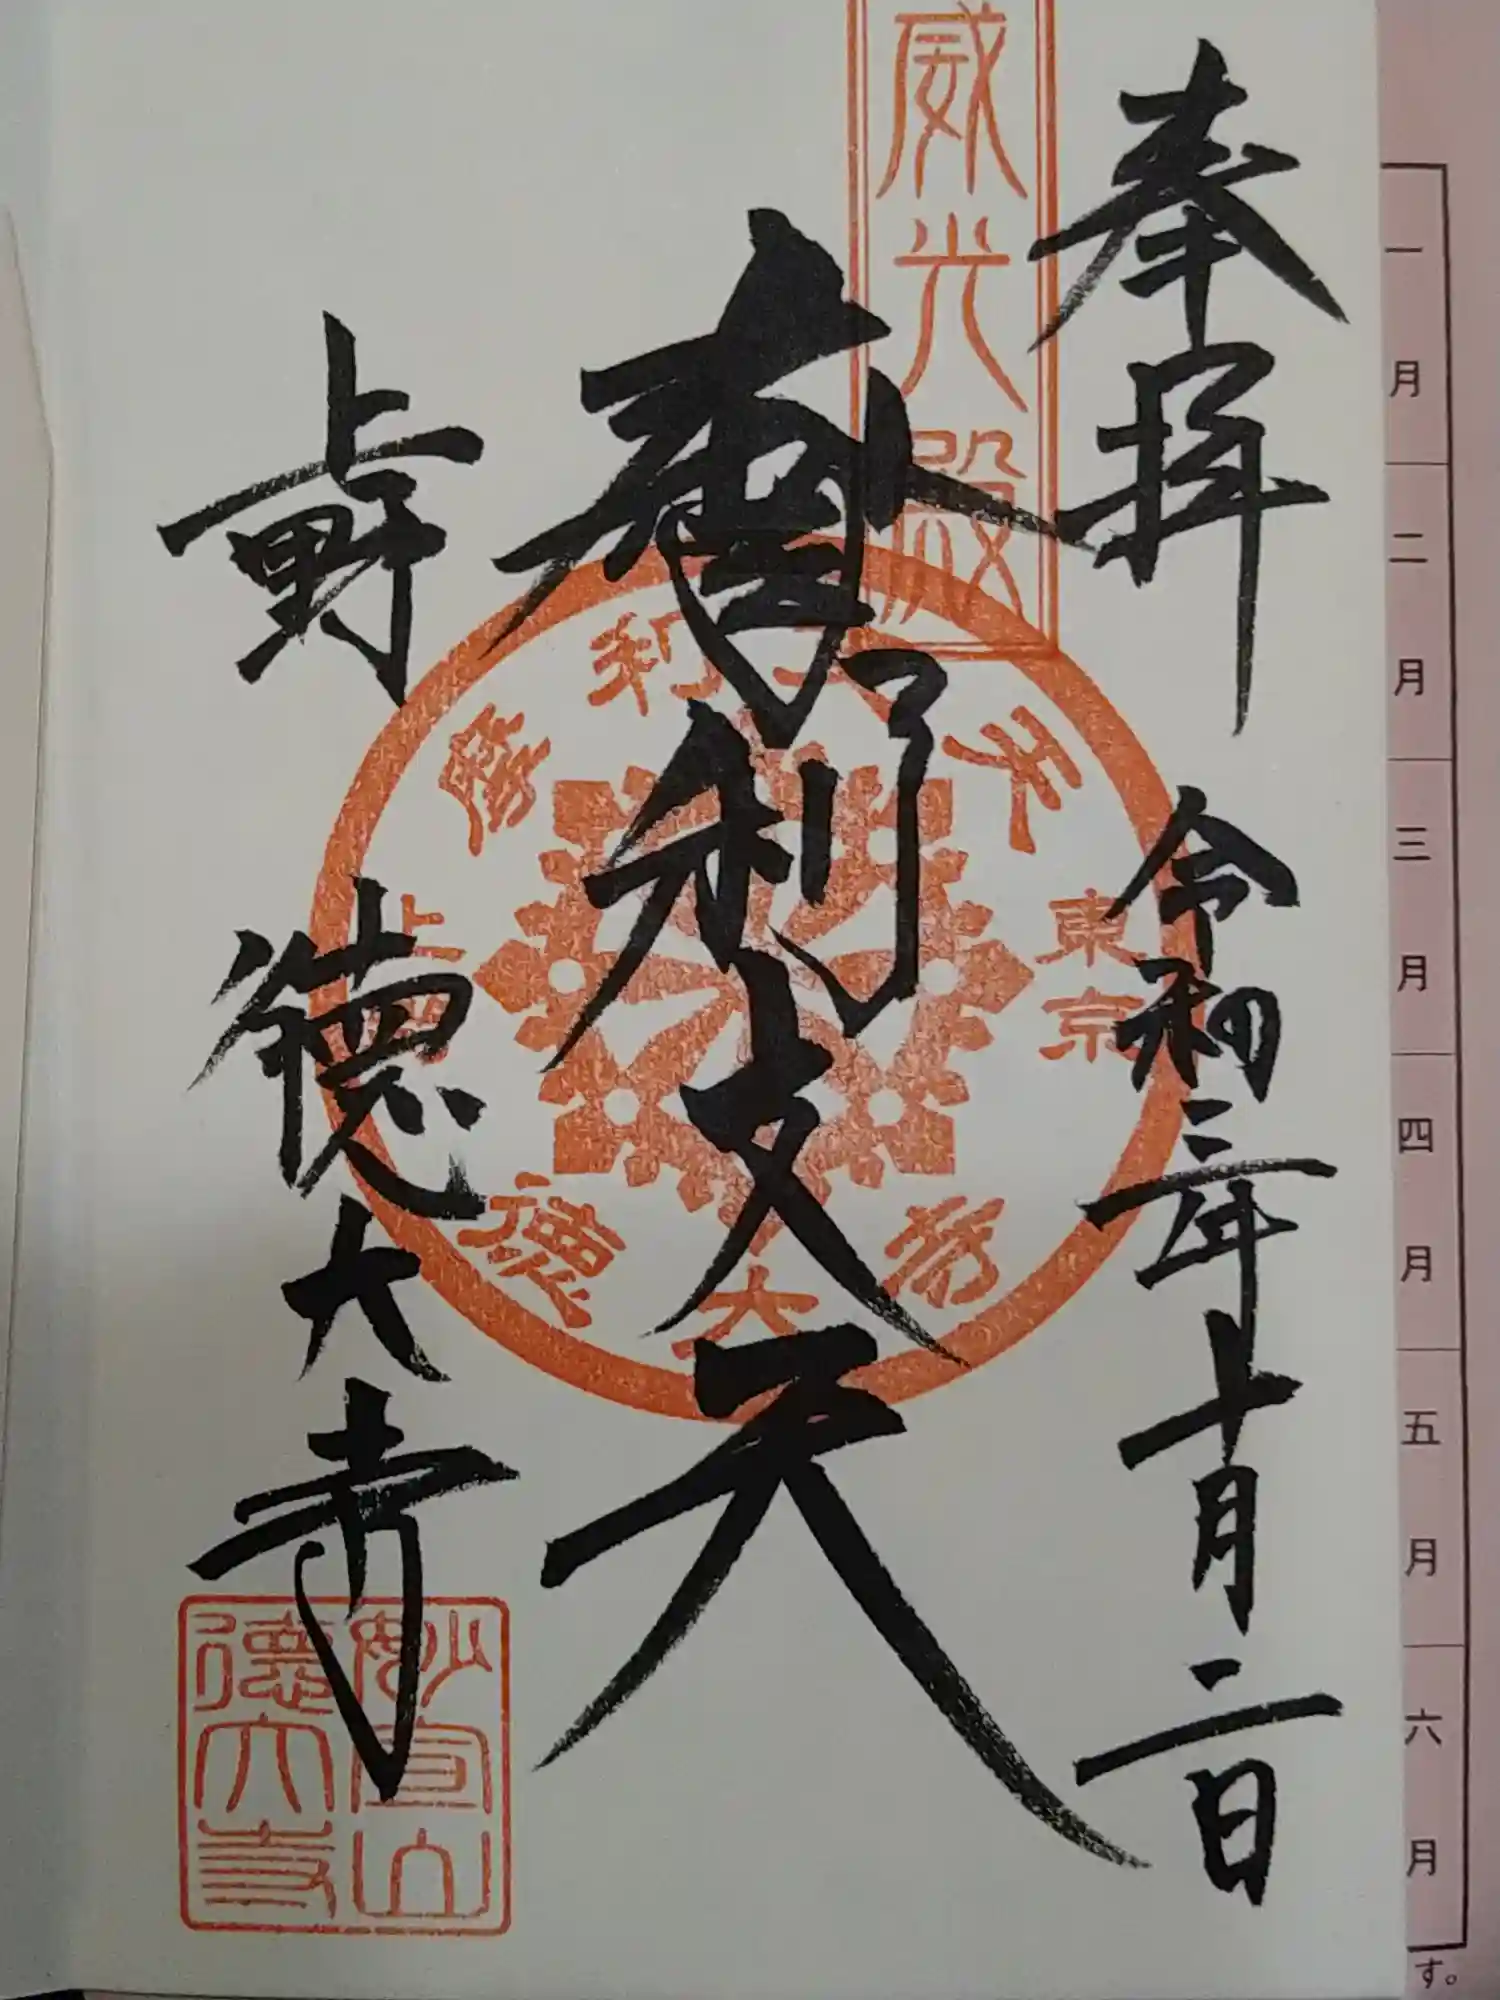 奉拝
令和三年十月二日
威光殿
摩利支天
摩利支天
東京
上野
徳大寺
上野
徳大寺
妙宣山
徳大寺
一月
二月
三月
四月
五月
六月
す。